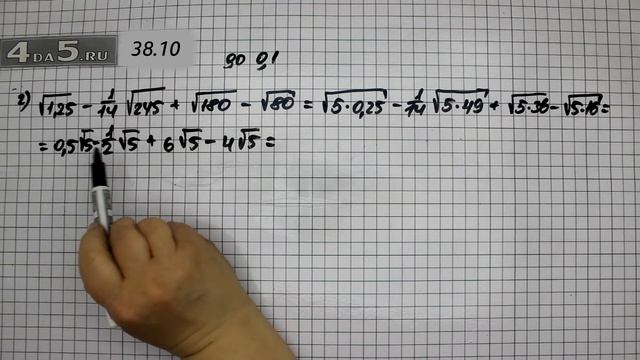 4DA5.RU
38.10
до 0,1
2) √1,25 - 1/14 √245 + √180 - √80 = √5·0,25 - 1/14 √5·49 + √5·36 - √5·16 =
= 0,5√5 - 1/2 √5 + 6√5 - 4√5 =